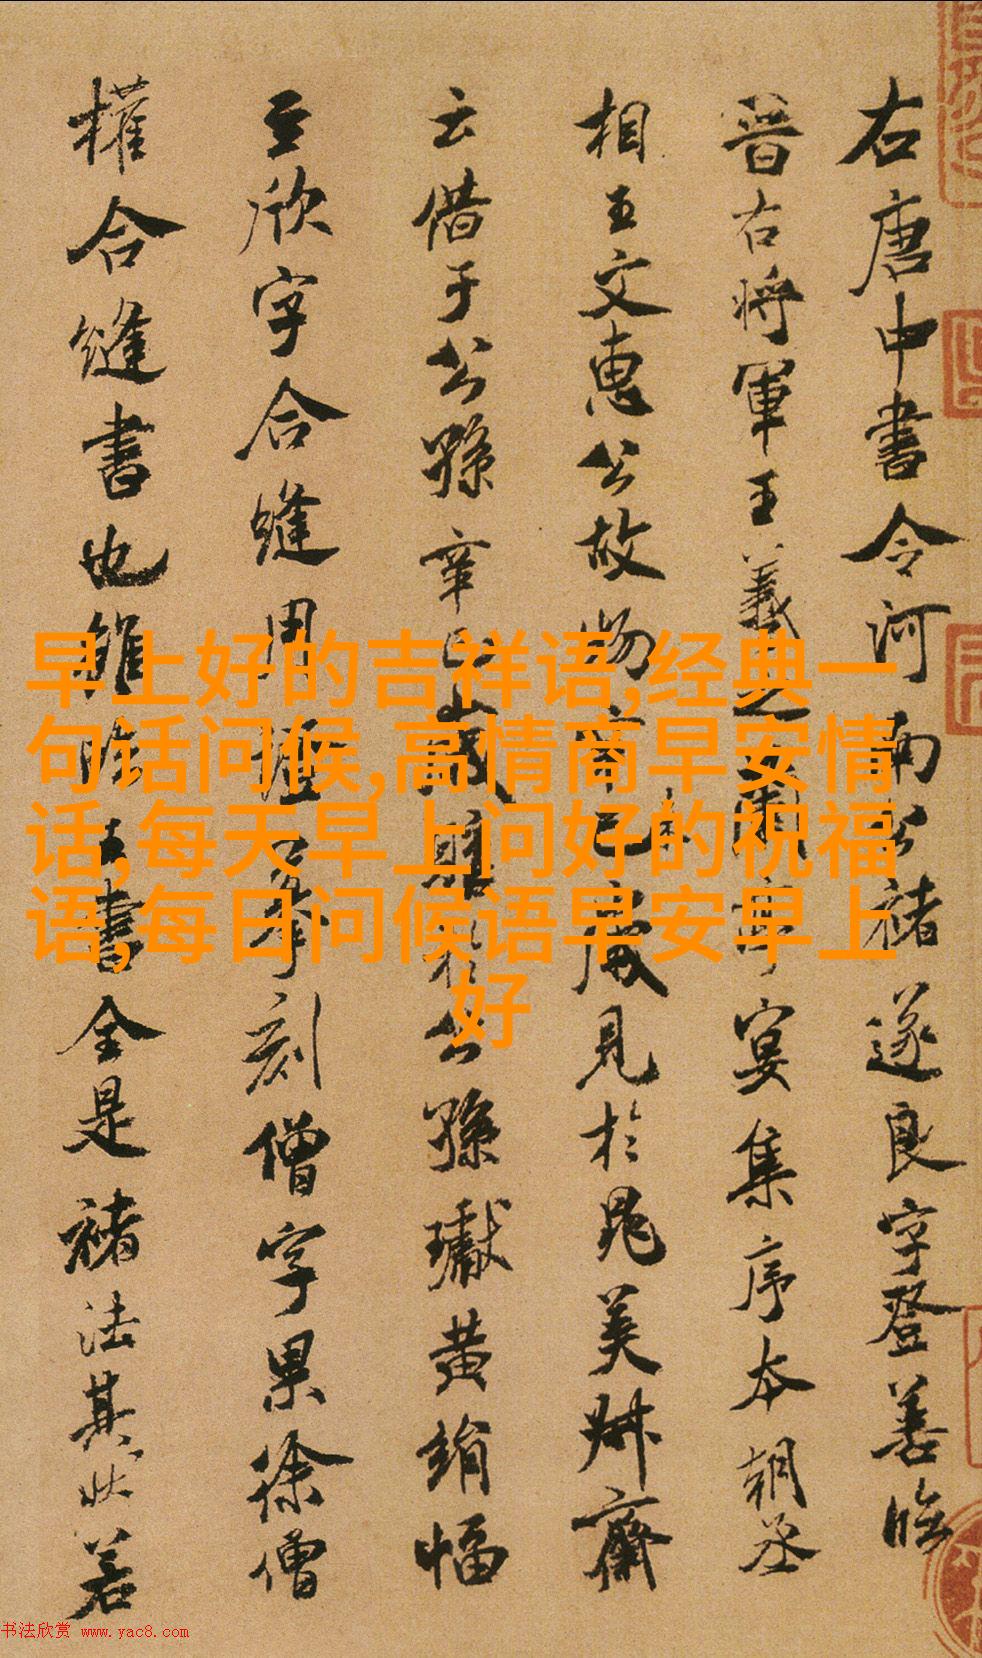 右唐中書令河南公褚遂良字登善臨
晉右将軍王羲之蘭亭宴集序本朝丞
相王文惠公故物辛巳歲見於晁美叔齋
云借于公孫辛巳歲購於公孫瓛黄絹幅
至欣字合縫用證摹刻僧字果徐僧
權合縫書也雖臨王書全是褚法其状若
早上好的吉祥语,经典一
句话问候,高情商早安情
话,每天早上问好的祝福
语,每日问候语早安早上
好
书法欣赏 www.yac8.com